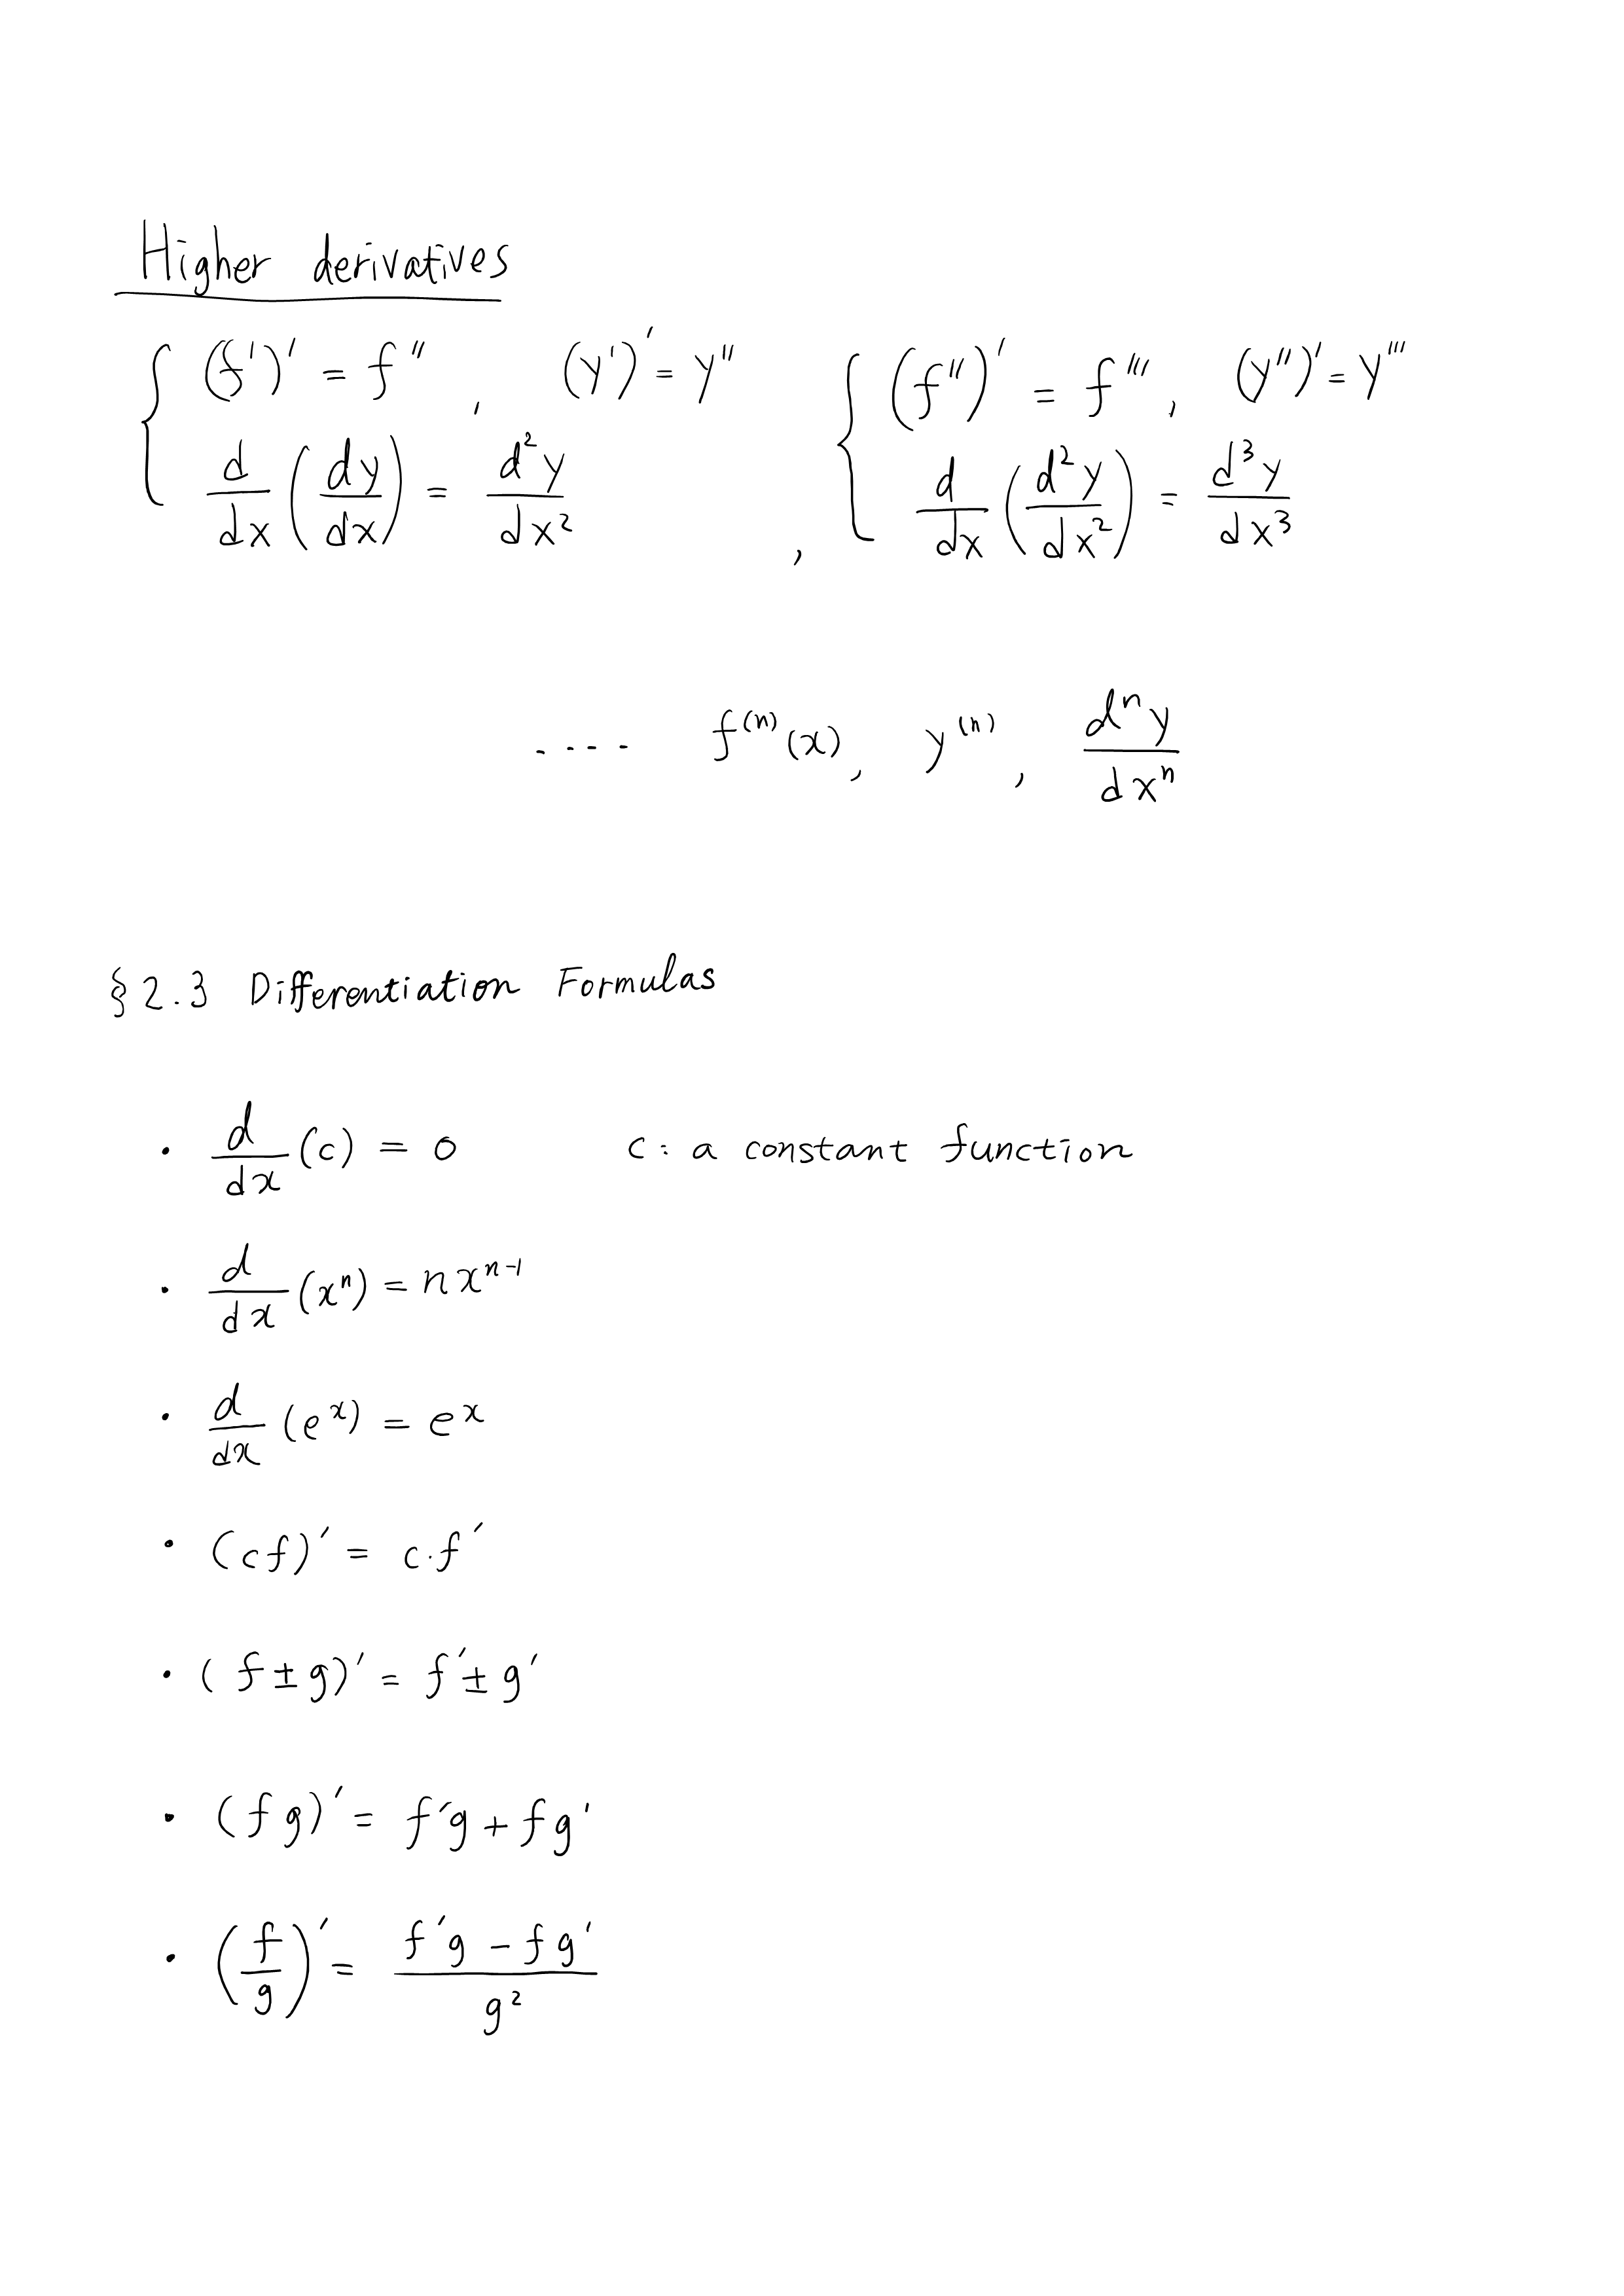 Higher derivatives
(f')' = f'', (y')' = y'', (f'')' = f''', (y'')' = y'''
d/dx (dy/dx) = d²y/dx², d/dx (d²y/dx²) = d³y/dx³
.... f⁽ⁿ⁾(x), y⁽ⁿ⁾, dⁿy/dxⁿ
§ 2.3 Differentiation Formulas
· d/dx (c) = 0 c: a constant function
· d/dx (xⁿ) = nxⁿ⁻¹
· d/dx (eˣ) = eˣ
· (cf)' = c·f'
· (f ± g)' = f' ± g'
· (fg)' = f'g + fg'
· (f/g)' = (f'g - fg')/g²